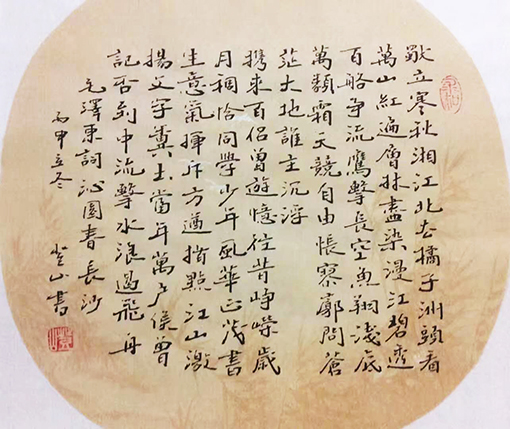 獨立寒秋湘江北去橘子洲頭看
萬山紅遍層林盡染漫江碧透
百舸爭流鷹擊長空魚翔淺底
萬類霜天競自由悵寥廓問蒼
茫大地誰主沉浮
携來百侶曾遊憶往昔崢嶸歲
月稠恰同學少年風華正茂書
生意氣揮斥方遒指點江山激
揚文字糞土當年萬戶侯曾
記否到中流擊水浪遏飛舟
毛澤東詞沁園春長沙
丙申立冬 山書